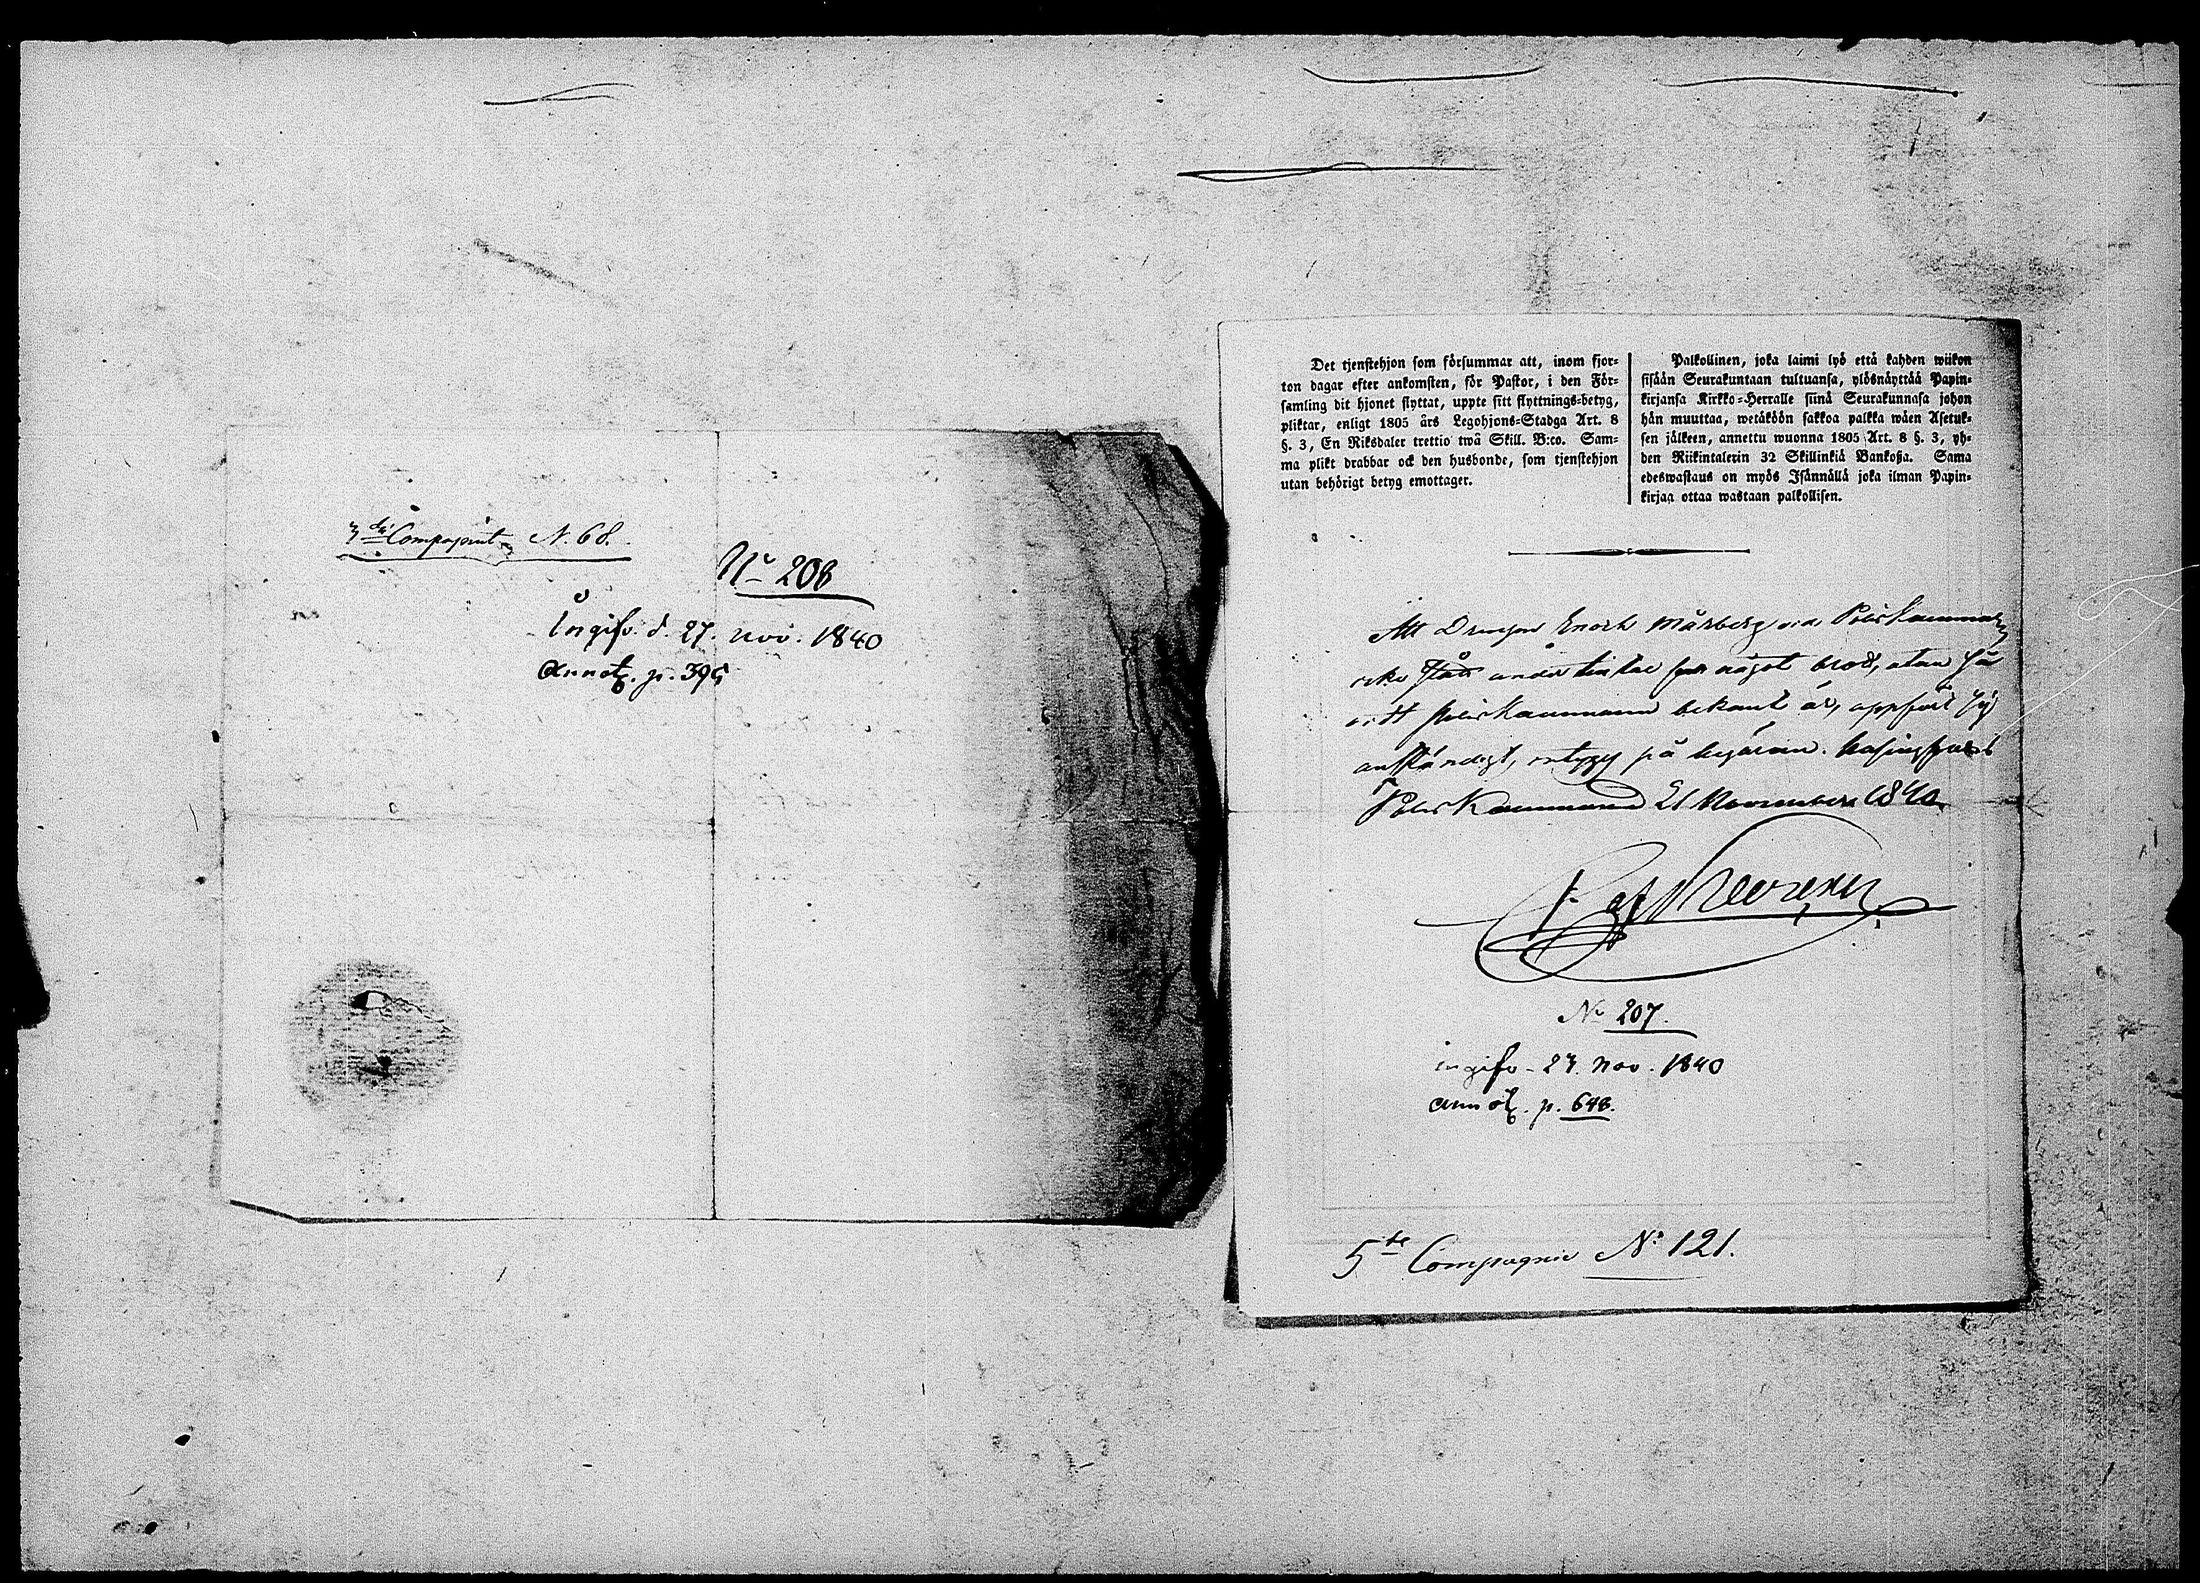 3die Compagniet N. 68.
No 208
Ingifv. d. 27. nov. 1840
Annot. p. 395
Det tjenstehjon som försummar att, inom fjor-
ton dagar efter ankomsten, för Pastor, i den För-
samling dit hjonet flyttat, uppte sitt flyttnings-betyg,
pliktar, enligt 1805 års Legohjons-Stadga Art. 8
§. 3, En Riksdaler trettio twå Skill. B:co. Sam-
ma plikt drabbar ock den husbonde, som tjenstehjon
utan behörigt betyg emottager.
Palkollinen, joka laimi lyö että kahden wiikon
sisään Seurakuntaan tultuansa, ylösnäyttää Papin-
kirjansa Kirkko-Herralle siinä Seurakunnasa johon
hän muuttaa, wetäköön sakkoa palkka wäen Asetuk-
sen jälkeen, annettu wuonna 1805 Art. 8 §. 3, yh-
den Riikintalerin 32 Skillinkiä Bankoßa. Sama
edeswastaus on myös Isännällä joka ilman Papin-
kirjaa ottaa wastaan palkollisen.
Att Drengen Enoch Mårberg vid PolisKammar
icke står under tiltal för något brott, utan så
vitt PolisKammaren bekant är, uppfört sig
anständigt, intygas på begäran. Helsingfors
PolisKammare 21 November 1840.
No 207.
ingifv - 23. Nov. 1840
Annot. p. 648.
5te Compagnie No 121.